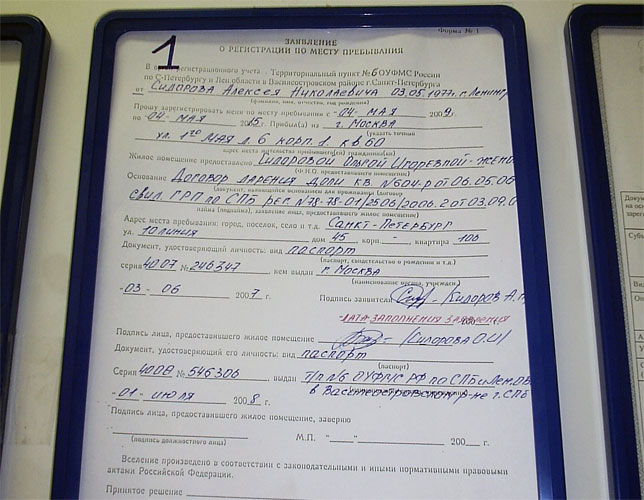 Форма № 1
1
ЗАЯВЛЕНИЕ
О РЕГИСТРАЦИИ ПО МЕСТУ ПРЕБЫВАНИЯ
В регистрационного учета Территориальный пункт №6 ОУФМС России
по С-Петербургу и Лен.области в Василеостровском районе г.Санкт-Петербурга
от Сидорова Алексея Николаевича 03.05.1977г. г.Ленинг
(фамилия, имя, отчество, год рождения)
Прошу зарегистрировать меня по месту пребывания с "04" МАЯ 2009г.
по "04" МАЯ 2015г. Прибыл(а) из г. МОСКВА
(указать точный
ул. 1го МАЯ д.6 корп.1 кв.60
адрес места жительства прибывшего(й) гражданина(ки)
Жилое помещение предоставлено Сидоровой Ольгой Игоревной - жено
(Ф.И.О. предоставившего жилое помещение)
Основание Договор дарения доли кв. №604-р от 06.05.06
(документ, являющийся основанием для проживания (договор
свид. ГРП по СПБ рег. №78-78-01/2506/2006.2 от 03.09.0
найма (поднайма), заявление лица, предоставившего жилое помещение)
Адрес места пребывания: город, поселок, село и т.д. Санкт-Петербург
ул. 10 линия дом 45 корп. - квартира 100
Документ, удостоверяющий личность: вид паспорт
(паспорт, свидетельство о рождении и т.д.)
серия 4007 № 246347 кем выдан г. МОСКВА
(наименование органа, учрежде
"03" 06 2007 г. Подпись заявителя Сидоров А.Н.
ДАТА ЗАПОЛНЕНИЯ ЗАЯВЛЕНИЯ
Подпись лица, предоставившего жилое помещение Сидорова О.И/
Документ, удостоверяющий его личность: вид паспорт
(паспорт)
Серия 4008 № 546306 выдан Т/п №6 ОУФМС РФ по СПБ и Лен.об
"01" июля 2008 г. в Василеостровском р-не г.СПБ
Подпись лица, предоставившего жилое помещение, заверяю
(подпись должностного лица) М.П. "___" 200__ г.
Вселение произведено в соответствии с законодательными и иными нормативными правовыми
актами Российской Федерации.
Принятое решение